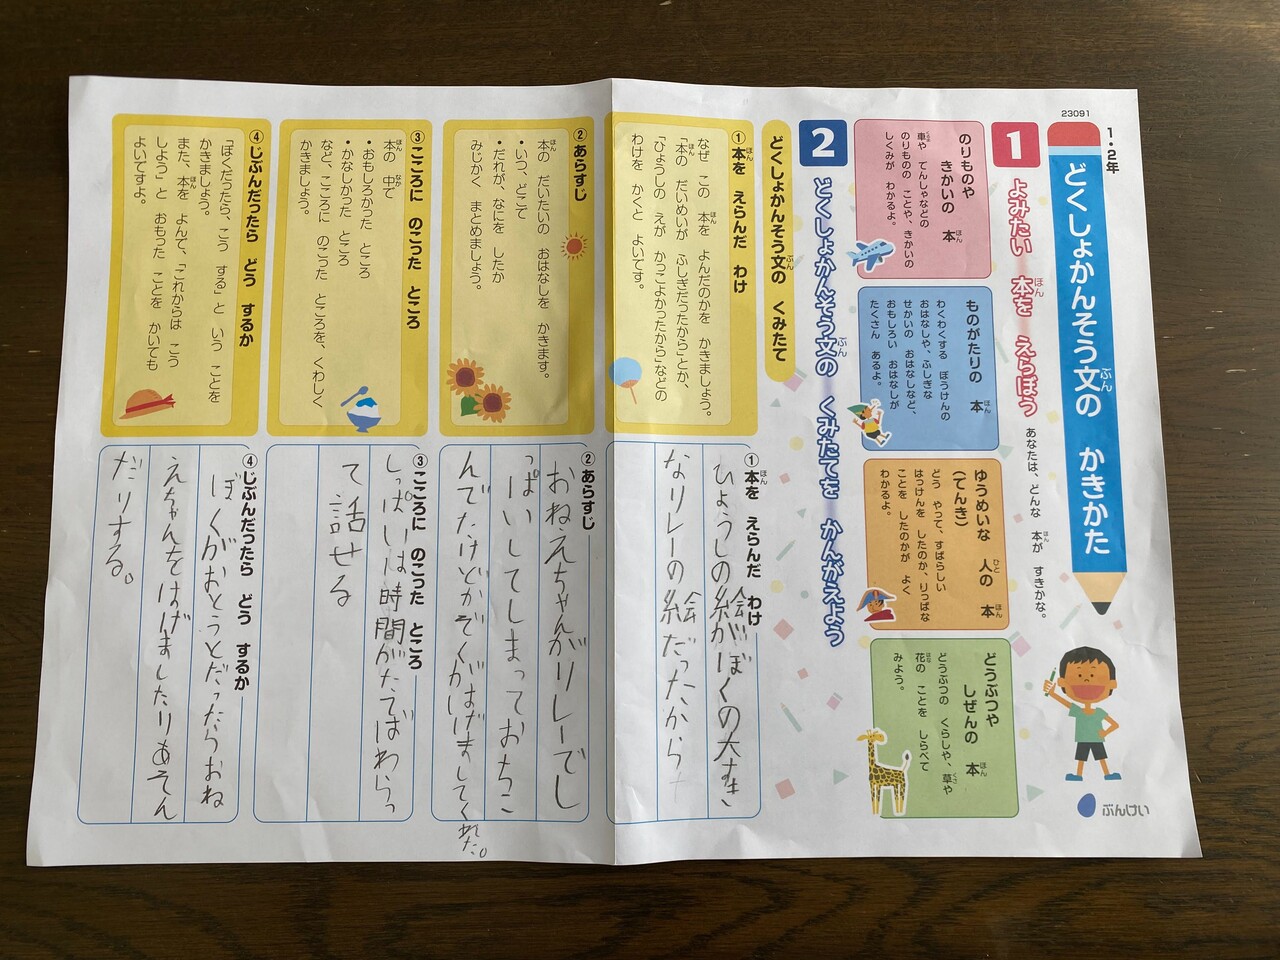 23091
1・2年
どくしょかんそう文の かきかた
ぶん
1
よみたい 本を えらぼう
ほん
あなたは、どんな 本が すきかな。
ほん
のりものや
きかいの 本
ほん
車や てんしゃなどの
くるま
のりものの ことや、きかいの
しくみが わかるよ。
ものがたりの 本
ほん
わくわくする ぼうけんの
おはなしや、ふしぎな
せかいの おはなしなど、
おもしろい おはなしが
たくさん あるよ。
ゆうめいな 人の 本
ひと
ほん
(でんき)
どう やって、すばらしい
はっけんを したのか、りっぱな
ことを したのかが よく
わかるよ。
どうぶつや
しぜんの 本
ほん
どうぶつの くらしや、草や
くさ
花の ことを しらべて
はな
みよう。
ぶんけい
2
どくしょかんそう文の くみたてを かんがえよう
ぶん
どくしょかんそう文の くみたて
ぶん
①本を えらんだ わけ
ほん
なぜ この 本を よんだのかを かきましょう。
ほん
「本の だいめいが ふしぎだったから」とか、
ほん
「ひょうしの えが かっこよかったから」などの
わけを かくと よいです。
②あらすじ
本の だいたいの おはなしを かきます。
ほん
・いつ、どこで
・だれが、なにを したか
みじかく まとめましょう。
③こころに のこった ところ
本の 中で
ほん
なか
・おもしろかった ところ
・かなしかった ところ
など、こころに のこった ところを、くわしく
かきましょう。
④じぶんだったら どう するか
「ぼくだったら、こう する」と いう ことを
かきましょう。
また、本を よんで、「これからは こう
ほん
しよう」と おもった ことを かいても
よいですよ。
①本を えらんだ わけ
ほん
ひょうしの絵がぼくの大すき
なリレーの絵だったから
②あらすじ
おねえちゃんがリレーでしっ
ぱいしてしまっておちこ
んでたけどかぞくがはげましてくれた。
③こころに のこった ところ
しっぱいは時間がたてばわらっ
て話せる
④じぶんだったら どう するか
ぼくがおとうとだったらおね
えちゃんをはげましたりあそん
だりする。